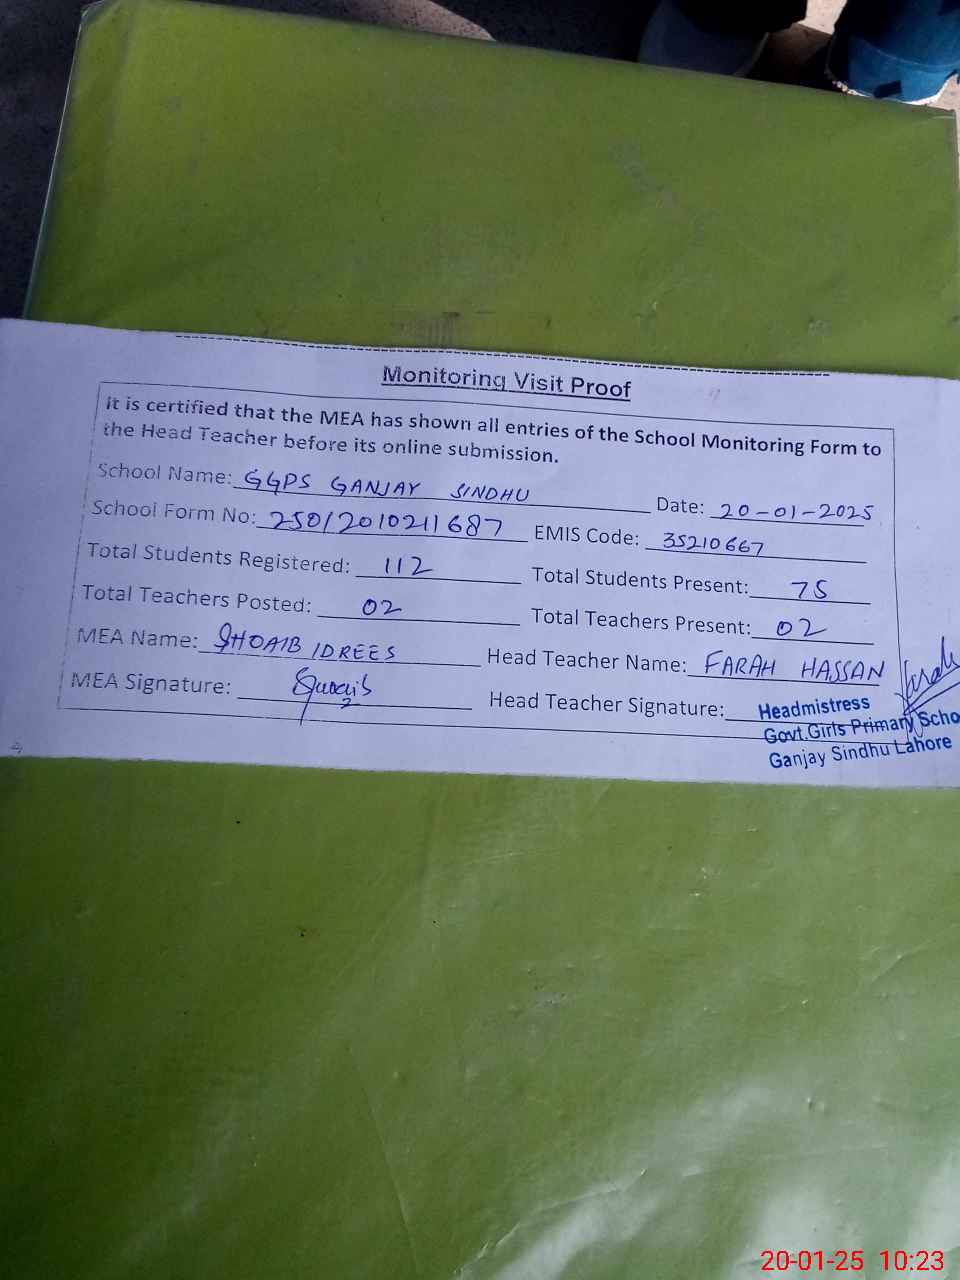 Monitoring Visit Proof
It is certified that the MEA has shown all entries of the School Monitoring Form to
the Head Teacher before its online submission.
School Name: GGPS GANJAY SINDHU Date: 20-01-2025
School Form No: 25012010211687 EMIS Code: 35210667
Total Students Registered: 112 Total Students Present: 75
Total Teachers Posted: 02 Total Teachers Present: 02
MEA Name: SHOAIB IDREES Head Teacher Name: FARAH HASSAN
MEA Signature: Shoaib Head Teacher Signature: Farah
Headmistress
Govt.Girls Primary Scho
Ganjay Sindhu Lahore
20-01-25 10:23